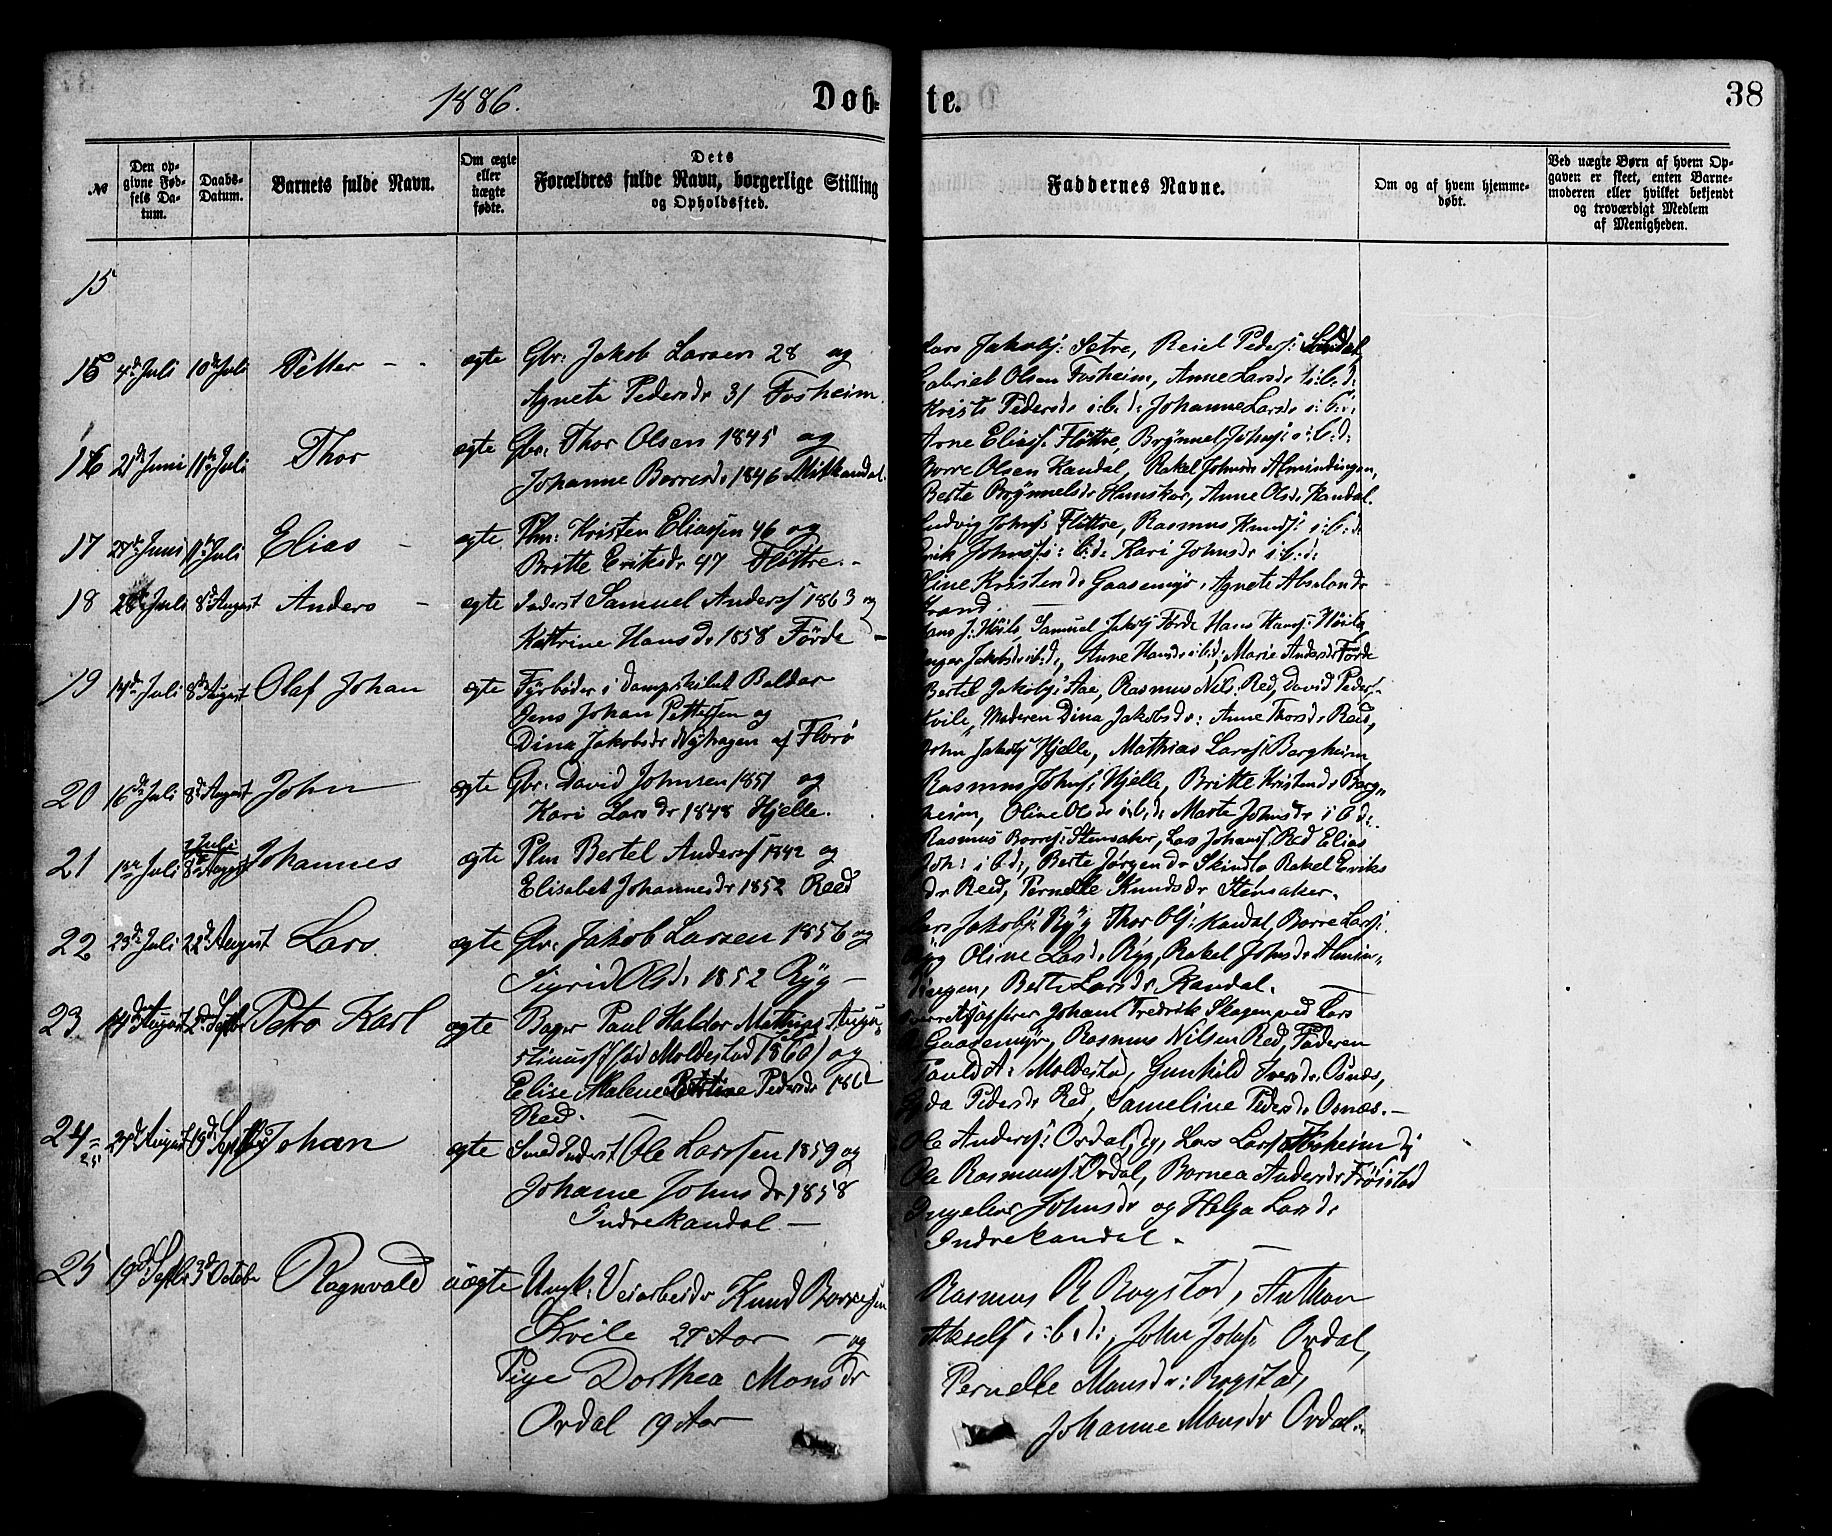 1886.
Døb-
te.
38
№
Den op-
givne Fød-
sels Da-
tum.
Daabs-
Datum.
Barnets fulde Navn.
Om ægte
eller
uægte
fødte.
Dets
Forældres fulde Navn, borgerlige Stilling
og Opholdssted.
Faddernes Navne.
Om og af hvem hjemme-
døbt.
Ved uægte Børn af hvem Op-
gaven er skeet, enten Barne-
moderen eller hvilket bekjendt
og troværdigt Medlem
af Menigheden.
15
15 4de Juli 10de Juli Petter - - ægte Gbr: Jakob Larsen 28 og
Agnete Pedersdr 31 Fosheim.
Lars Jakobs: Sætre, Reiel Peders: Sandal,
Gabriel Olsen Fosheim, Anne Larsdr i:b:d:
Kristi Pedersdr i:b:d: Johanne Larsdr i:b:d:
16 21de Juni 11te Juli Thor ægte Gbr: Thor Olsen 1845 og
Johanne Borresdr 1846 Mitkandal.
Arne Eliass: Fløttre, Brynnel Johns: i:b:d:
Borre Olsen Kandal, Rakel Johnsdr Almindingen,
Berte Brynnelsdr Hamskar, Anne Olsdr Kandal.
17 27de Juni 11te Juli Elias - ægte Plm: Kristen Eliassen 46 og
Britte Eriksdr 47 Fløttre. -
Ludvig Johns: Fløttre, Rasmus Knuds: i:b:d:
Erik Johnss: i:b:d: Kari Johnsdr i:b:d:
Oline Kristensdr Gaasemyr, Agnete Absalonsdr
18 28de Juli 8de August Anders - ægte Inderst Samuel Anders 1863 og
Kattrine Hansdr 1858 Førde -
Hans J: Høile, Samuel Jakobs Førde Hans Hans: Høile,
Inger Jakobsdr i:b:d:, Anne Hansdr i:b:d: Marie Andersdr Førde
19 14de Juli 8de August Olaf Johan ægte Fyrbøder i Dampskibet Baldar
Jens Johan Pettersen og
Dina Jakobsdr Nyhagen af Florø
Bertel Jakobs: Aae, Rasmus Nils. Red, David Peders.
Kvile, Moderen Dina Jakobsdr: Anne Thorsdr Reed,
20 16de Juli 8de August John ægte Gbr: David Johnsen 1851 og
Kari Larsdr 1848 Hjelle.
John Jakobs Hjelle, Mathias Larss: Bergheim,
Rasmus Johns: Hjelle, Britte Kristensdr Berg-
heim, Oline Olsdr i:b:d: Marte Johnsdr i b d:
21 1ste Juli 8de August Juli Johannes ægte Plm Bertel Anders 1842 og
Elisabet Johannesdr 1852 Reed
Rasmus Borres: Stensaker, Lars Johans: Red Elias
Joh: i b d:, Berte Jørgensdr Skindlo, Rakel Eriks
dr Reed, Pernelle Knudsdr Stensaker.
22 23de Juli 22de August Lars. ægte Gbr: Jakob Larsen 1856 og
Sigrid Olsdr 1852 Ryg -
Lars Jakobs: Ryg Thor Ols: Kandal, Borre Lars:
Ryg Oline Larsdr Ryg, Rakel Johnsdr Almin-
dingen, Berte Larsdr Kandal. -
23. 14de August 12de Septbr Petro Karl ægte Bager Paul Haldor Mathias Augu-
stinuss (fød Moldestad 1860) og
Elise Malene Bertine Pedersdr 186
Red. -
Johant Fredrik Skagen ved Lars
Gaasemyr, Rasmus Nilsen Red, Faderen
A: Moldestad, Gunhild Iversdr Osnæs,
Pedersdr Red, Sameline Pedersdr Osnæs. -
24 25 27de August 19de Septbr Johan ægte Smed Inderst Ole Larssen 1859 og
Johanne Johnsdr 1858
Indrekandal -
Ole Anders: Ordal, dy, Lars Larss Fosheim dy
Ole Rasmuss: Ordal, Bornea Andersdr Frøistad
Ingeleiv Johnsdr og Helga Larsdr
Indrekandal -
25 19de Septbr 3de October Ragnvald uægte Ungk: Veiarbeider Knud Borresen
Kvile 27 Aar - og
Pige Dorthea Monsdr
Ordal 19 Aar
Rasmus R Rogstad, Anthon
Aksels i:b:d:, John Johs: Ordal,
Pernelle Monsdr: Rogstad,
Johanne Monsdr Ordal.